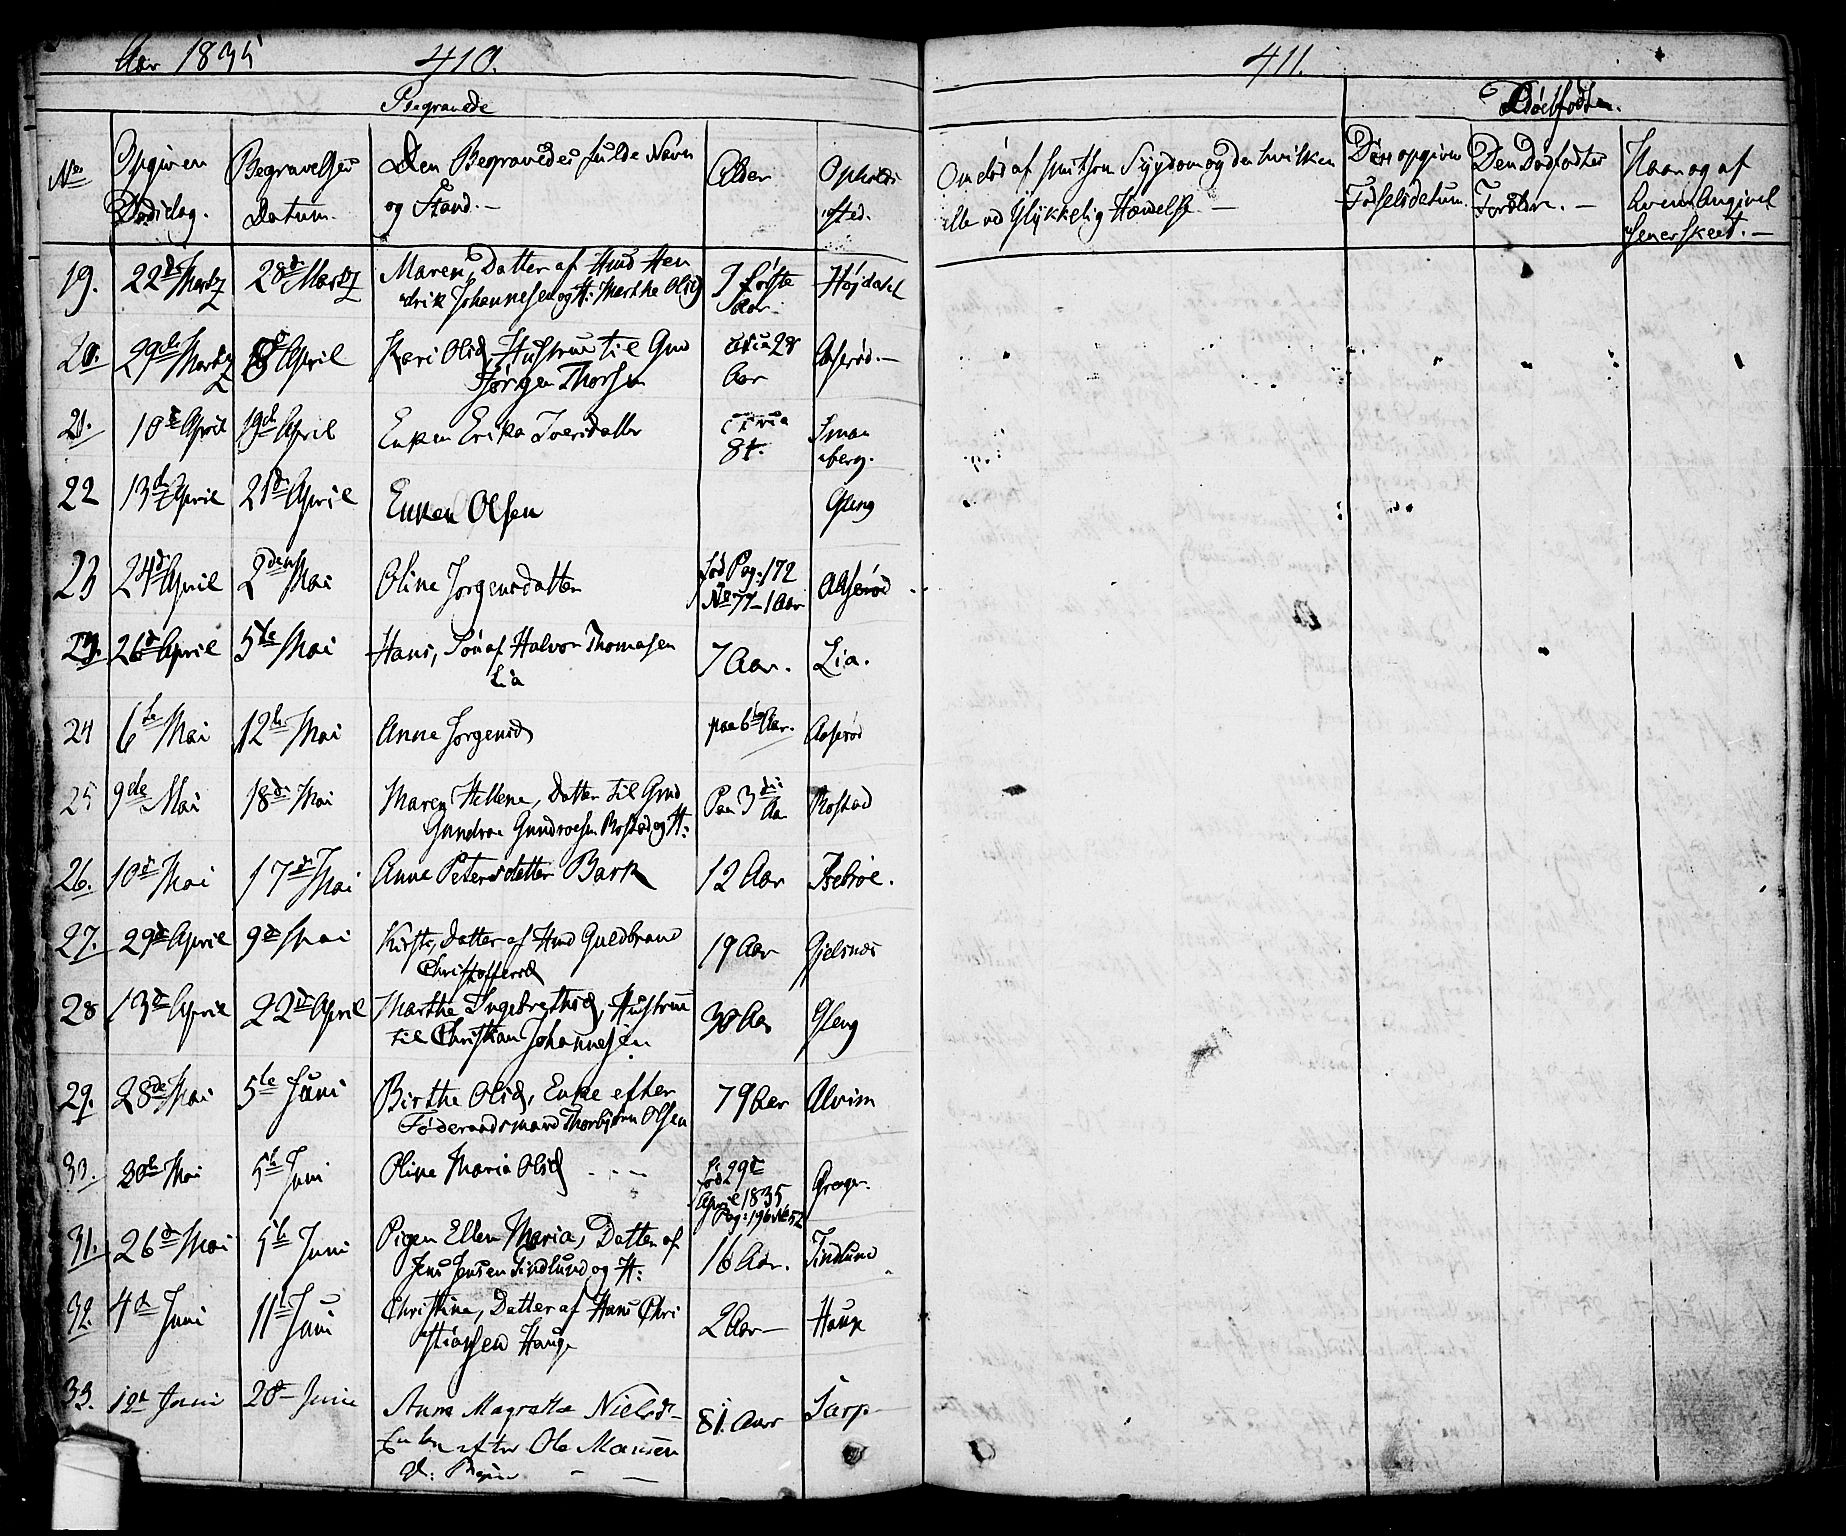 Aar 1835 410.
Begravede
No
Opgiven
Dødsdag.
Begravelses
Datum.
Den Begravedes fulde Navn
og Stand. -
Alder
Opholds
sted.
19. 22de Martz 28de Martz Maren, Datter af Hmd Hen
drik Johannesen og H: Marthe Olsd I første Aar. Højdahl
20. 29de Martz 8de April Kari Olsd, Hustrue til Gmd
Jørgen Thorsen circa 28 Aar Aaserød. -
21. 10de April 19de April Enken Erika Iversdatter circa 84. Smaa
berg.
22 13de April 21de April Enken Olsen Gleng
23 24de April 2den Mai Oline Jørgensdatter fød Pag: 172
No 77 - 1 Aar Aaserød
23. 26de April 5te Mai Hans, Søn af Halvor Thomasen
Lia 7 Aar. Lia.
24 6te Mai 12te Mai Anne Jørgensd paa 6te Aar. Aaserød
25 9de Mai 18de Mai Maren Hellene, Datter til Gmd
Gundroe Gundroesen Rostad og H: Paa 3die Aar Rostad
26. 10de Mai 17de Mai Anne Petersdatter Bark 12 Aar Isebroe.
27. 29de April 9de Mai Kirste, Datter af Hmd Guldbrand
Christoffersd 19 Aar Gjelsnes
28 13de April 22de April Marthe Ingebrethsd, Hustrue
til Christian Johannesen 30 Aar Gleng
29. 28de Mai 5te Juni Birthe Olsd, Enke efter
Føderaadsmand Thorbjørn Olsen 79 Aar Alvim
30te Mai 5te Juni Oline Maria Olsd - - - fød 29de
April 1835
Pag: 196 No 52 Greger.
31. 26de Mai 5te Juni Pigen Ellen Maria, Datter af
Jens Jensen Tindlund og H: 16 Aar. Tindlund
32. 4de Juni 11te Juni Christine, Datter af Hans Chri
stiansen Hauge 2 Aar - Haug
33. 12te Juni 20de Juni Anne Magrethe Nielsd -
Enke efter Ole Mansen 81. Aar Tarp -
411.
Dødfødte.
Om død af smitsom Sygdom og den hvilken
elle ved Ulykkelig Hændelse -
Den opgivne
Fødselsdatum.
Den Dødfødtes
Forældre. -
Naar og af
hvem Angivel
sen er skeet. -